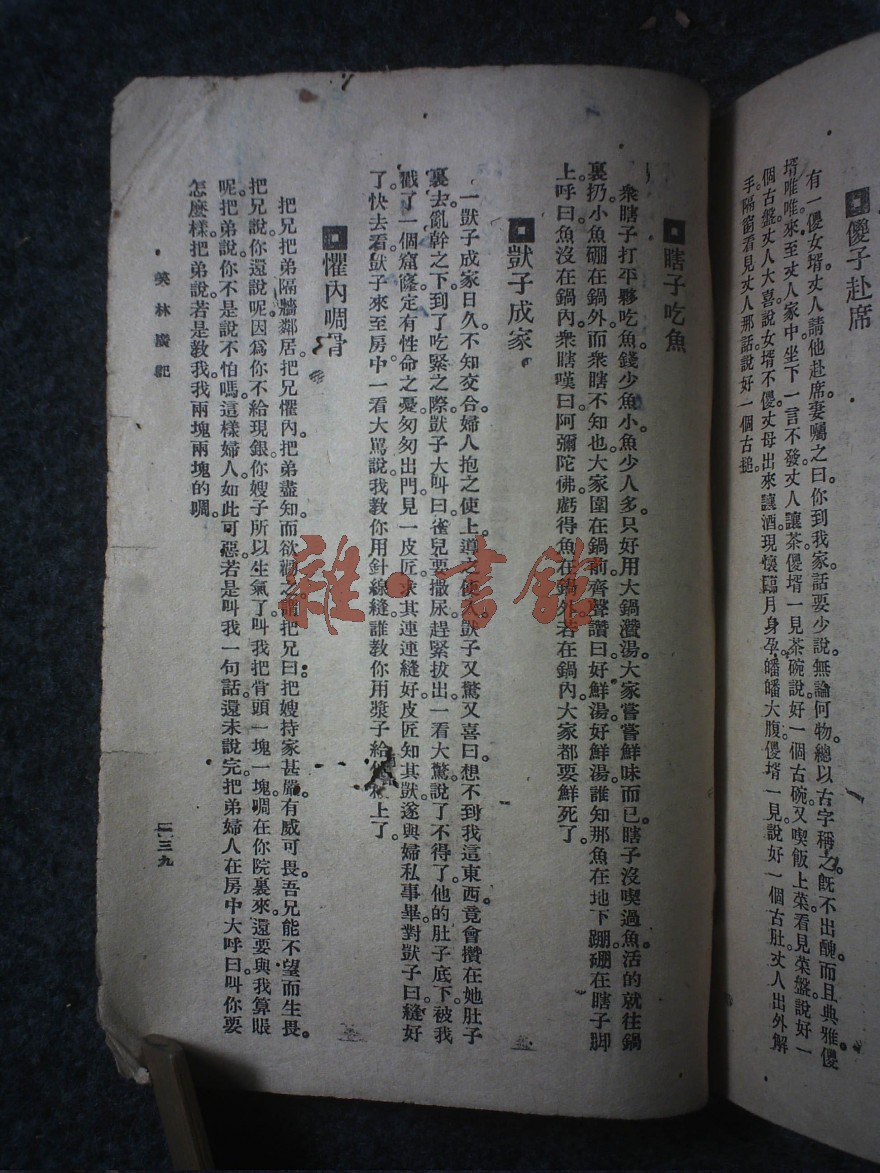 傻子赴席
有一傻女壻。丈人請他赴席。妻囑之曰。你到我家。話要少說。無論何物。總以古字稱之。既不出醜。而且典雅。傻
壻唯唯。來至丈人家中坐下。一言不發。丈人讓茶。傻壻一見茶碗。說好一個古碗。又喫飯上菜。看見菜盤。說好一
個古盤。丈人大喜。說女壻不傻。丈母出來讓酒。現懷臨月身孕。皤皤大腹。傻壻一見。說好一個古肚。丈人出外解
手。隔窗看見丈人那話。說好一個古搥。
瞎子吃魚
衆瞎子打平夥吃魚。錢少魚小。魚少人多。只好用大鍋㸆湯。大家嘗嘗鮮味而已。瞎子沒喫過魚。活的就往鍋
裏扔。小魚硼在鍋外。而衆瞎不知也。大家圍在鍋前。齊聲讚曰。好鮮湯。好鮮湯。誰知那魚在地下蹦。硼在瞎子脚
上。呼曰。魚沒在鍋內。衆瞎嘆曰。阿彌陀佛。虧得魚在鍋外。若在鍋內。大家都要鮮死了。
獃子成家
一獃子成家日久。不知交合。婦人抱之使上。導之使入。獃子又驚又喜曰。想不到我這東西竟會攢在她肚子
裏去。亂幹之下。到了吃緊之際。獃子大叫曰。雀兒要撒尿。趕緊拔出。一看大驚。說了不得了。他的肚子底下。被我
戳了一個窟窿。定有性命之憂。匆匆出門。見一皮匠。求其連連縫好。皮匠知其獃。遂與婦私。事畢對獃子曰。縫好
了。快去看。獃子來至房中一看。大罵說。我教你用針線縫。誰教你用漿子給上了。
懼內啁骨
把兄把弟。隔牆鄰居。把兄懼內。把弟盡知。而欲謔之。謂把兄曰。把嫂持家甚嚴。有威可畏。吾兄能不望而生畏。
把兄說。你還說呢。因爲你不給現銀。你嫂子所以生氣了。叫我把骨頭一塊一塊啁在你院裏來。還要與我算賬
呢。把弟說。你不是說不怕嗎。這樣婦人。如此可惡。若是叫我一句話。還未說完。把弟婦人在房中大呼曰。叫你要
怎麽樣。把弟說。若是教我。我兩塊兩塊的啁。
笑林廣記
二三九
雜·書館